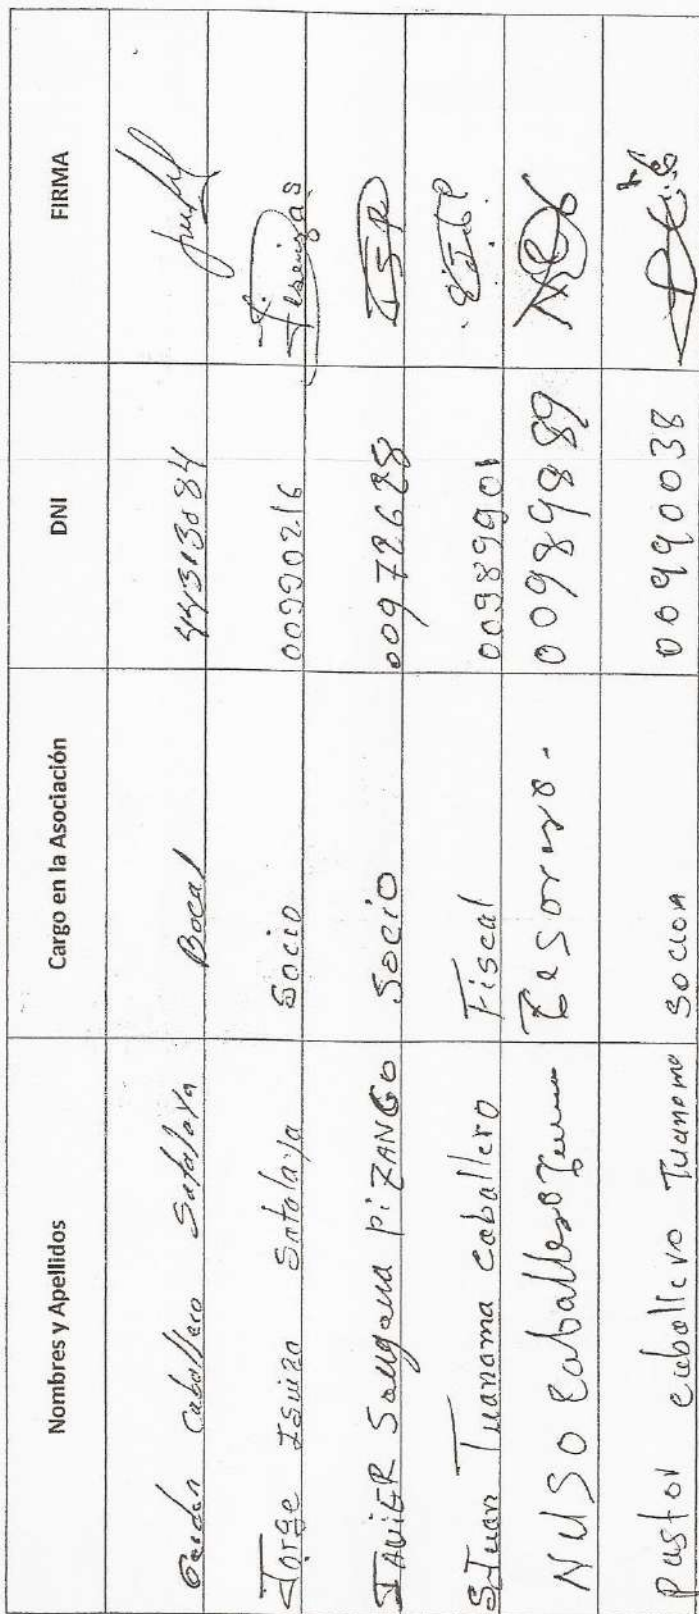 Nombres y Apellidos Cargo en la Asociación DNI FIRMA
Caballero Satalaya Bocal 44313084
Jorge Isuiza Satalaya Socio 00990216
JAViER Sangama PiZANGO Socio 00972628
Juan Tuanama Caballero Fiscal 00989901
NUSO Caballero Tesorero. 00989889
Pastor caballero Tuanama socion 00990038